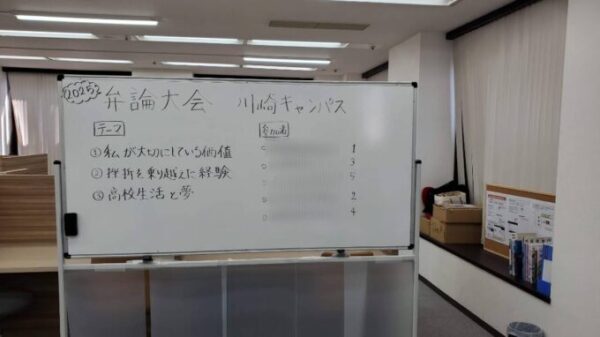 2025
弁論大会 川崎キャンパス
テーマ
①私が大切にしている価値
②挫折を乗り越えた経験
③高校生活と夢
参加者
1
3
5
2
4